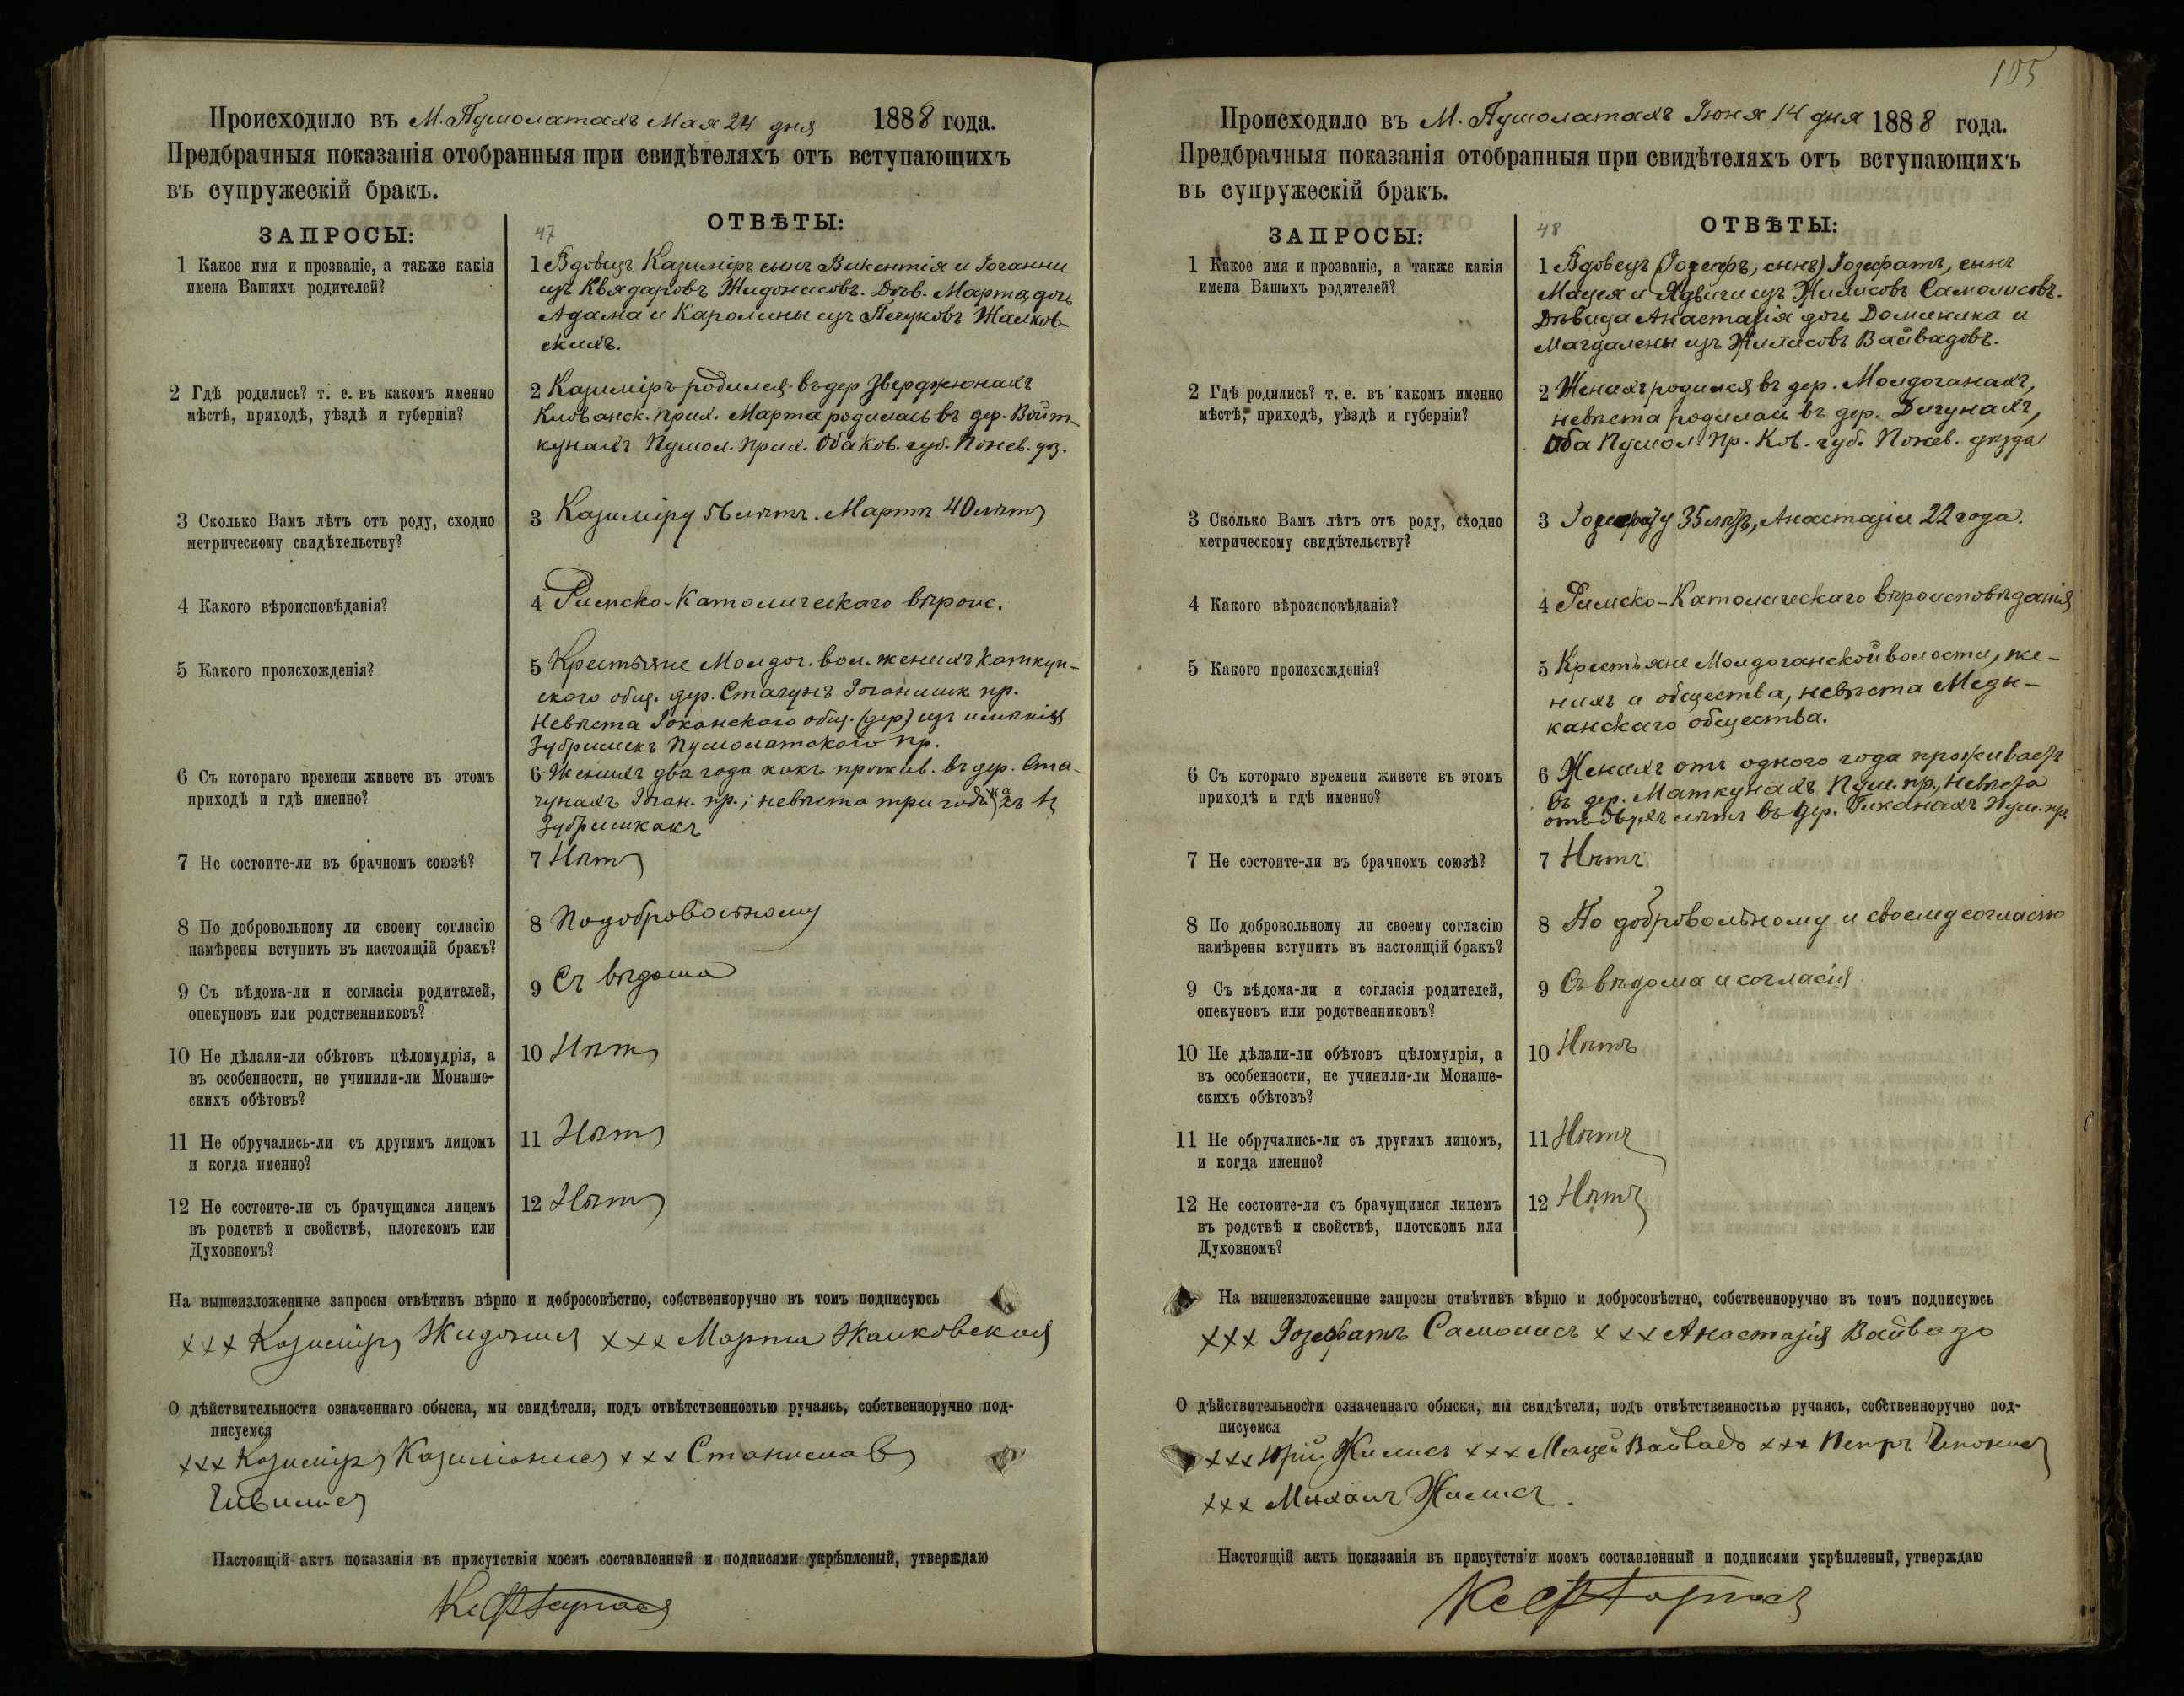 Происходило въ М. Пушолатахъ Мая 24 дня 1888 года.
Предбрачныя показанія отобранныя при свидѣтеляхъ отъ вступающихъ
въ супружескій бракъ.
ЗАПРОСЫ:
47
ОТВѢТЫ:
1 Какое имя и прозваніе, а также какія
имена Вашихъ родителей?
1 Вдовецъ Казиміръ сынъ Викентія и Іоганны
изъ Квядаровъ Жидонисовъ. Дѣв. Марта дочь
Адама и Каролины изъ Пегуновъ Жалков-
скихъ.
2 Гдѣ родились? т. е. въ какомъ именно
мѣстѣ, приходѣ, уѣздѣ и губерніи?
2 Казиміръ родился въ дер Зверджюнахъ
Кловянск. прих. Марта родилась въ дер. Войт-
кунахъ Пушол. прих. Оба Ков. губ. Понев. уз.
3 Сколько Вамъ лѣтъ отъ роду, сходно
метрическому свидѣтельству?
3 Казиміру 56 лѣтъ. Мартѣ 40 лѣтъ
4 Какого вѣроисповѣданія?
4 Римско-Католическаго вѣроис.
5 Какого происхожденія?
5 Крестьяне Молдог. вол. женихъ Каткун-
ского общ. дер. Стагунъ Іоганишк пр.
Невѣста Іоханскаго общ. (дер) изъ имѣнія
Зубришекъ Пушолатскаго пр.
6 Съ котораго времени живете въ этомъ
приходѣ и гдѣ именно?
6 Женихъ два года какъ прожив. въ дер. Ста-
гунахъ Іоган. пр.; невѣста три года какъ въ
Зубришкахъ
7 Не состоите-ли въ брачномъ союзѣ?
7 Нѣтъ
8 По добровольному ли своему согласію
намѣрены вступить въ настоящій бракъ?
8 По добровольному
9 Съ вѣдома-ли и согласія родителей,
опекуновъ или родственниковъ?
9 Съ вѣдома
10 Не дѣлали-ли обѣтовъ цѣломудрія, а
въ особенности, не учинили-ли Монаше-
скихъ обѣтовъ?
10 Нѣтъ
11 Не обручались-ли съ другимъ лицомъ
и когда именно?
11 Нѣтъ
12 Не состоите-ли съ брачущимся лицемъ
въ родствѣ и свойствѣ, плотскомъ или
Духовномъ?
12 Нѣтъ
На вышеизложенные запросы отвѣтивъ вѣрно и добросовѣстно, собственноручно въ томъ подписуюсь
xxx Казиміръ Жидонисъ xxx Марта Жалковская
О дѣйствительности означеннаго обыска, мы свидѣтели, подъ отвѣтственностью ручаясь, собственноручно под-
писуемся
xxx Казиміръ Казиліонисъ xxx Станиславъ
Чивилисъ
Настоящій актъ показанія въ присутствіи моемъ составленный и подписями укрѣпленый, утверждаю
105
Происходило въ М. Пушолатахъ Іюня 14 дня 1888 года.
Предбрачныя показанія отобранныя при свидѣтеляхъ отъ вступающихъ
въ супружескій бракъ.
ЗАПРОСЫ:
48
ОТВѢТЫ:
1 Какое имя и прозваніе, а также какія
имена Вашихъ родителей?
1 Вдовецъ (Іозефъ, сынъ) Іозефатъ, сынъ
Мацея и Ядвиги изъ Жилисовъ Самолисовъ.
Дѣвица Анастазія дочь Доминика и
Магдалены изъ Жилисовъ Вайвадовъ.
2 Гдѣ родились? т. е. въ какомъ именно
мѣстѣ, приходѣ, уѣздѣ и губерніи?
2 Женихъ родился въ дер. Молдоганахъ,
невѣста родилась въ дер. Дигунахъ,
Оба Пушол. пр. Ков. губ. Понев. уѣзда
3 Сколько Вамъ лѣтъ отъ роду, сходно
метрическому свидѣтельству?
3 35 лѣтъ, Анастазіи 22 года.
4 Какого вѣроисповѣданія?
4 Римско-Католическаго вѣроисповѣданія
5 Какого происхожденія?
5 Крестьяне Молдоганской волости, же-
нихъ и общества, невѣста Меды-
канскаго общества.
6 Съ котораго времени живете въ этомъ
приходѣ и гдѣ именно?
6 Женихъ отъ одного года проживаетъ
въ дер. Маткунахъ Пуш. пр., Невѣста
отъ двухъ лѣтъ въ дер. Гиканахъ Пуш. пр.
7 Не состоите-ли въ брачномъ союзѣ?
7 Нѣтъ
8 По добровольному ли своему согласію
намѣрены вступить въ настоящій бракъ?
8 По добровольному и своему согласію
9 Съ вѣдома-ли и согласія родителей,
опекуновъ или родственниковъ?
9 Съ вѣдома и согласія
10 Не дѣлали-ли обѣтовъ цѣломудрія, а
въ особенности, не учинили-ли Монаше-
скихъ обѣтовъ?
10 Нѣтъ
11 Не обручались-ли съ другимъ лицомъ,
и когда именно?
11 Нѣтъ
12 Не состоите-ли съ брачущимся лицемъ
въ родствѣ и свойствѣ, плотскомъ или
Духовномъ?
12 Нѣтъ
На вышеизложенные запросы отвѣтивъ вѣрно и добросовѣстно, собственноручно въ томъ подписуюсь
xxx Іозефатъ Самолисъ xxx Анастазія Вайвадо
О дѣйствительности означеннаго обыска, мы свидѣтели, подъ отвѣтственностью ручаясь, собственноручно под-
писуемся
xxx Юрій Жилисъ xxx Мацей Вайвадо xxx Петръ Чипонисъ
xxx Михаилъ Жилисъ.
Настоящій актъ показанія въ присутствіи моемъ составленный и подписями укрѣпленый, утверждаю